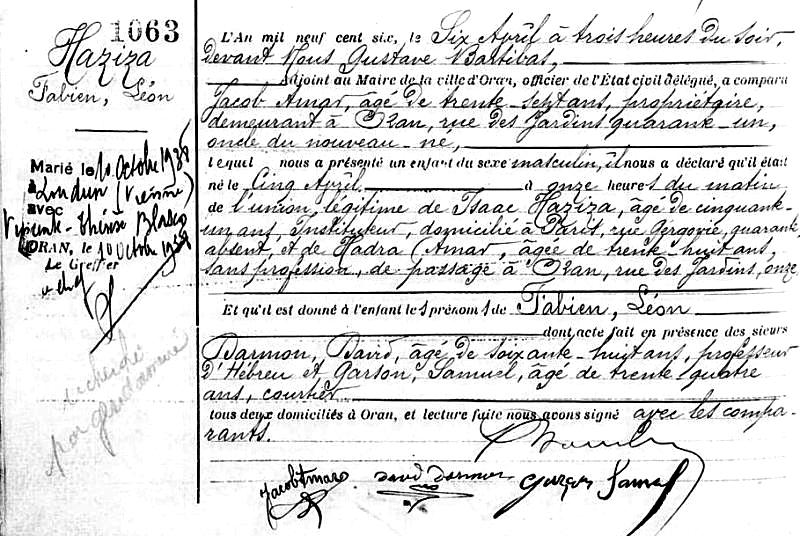 1063
Haziza
Fabien, Léon
Marié le 10 Octobre 1938
à Loudun (Vienne)
avec
Vicente-Thérèse Blasco
ORAN, le 10 Octobre 1938
Le Greffier
recherché
par gendarmerie
L'An mil neuf cent six, le Six Avril à trois heures du soir,
devant Nous Gustave Bartibas,
Adjoint au Maire de la ville d'Oran, officier de l'État civil délégué, a comparu
Jacob Amar, âgé de trente-sept ans, propriétaire,
demeurant à Oran, rue des Jardins quarante-un,
oncle du nouveau-né,
lequel nous a présenté un enfant du sexe masculin, il nous a déclaré qu'il était
né le Cinq Avril à onze heures du matin
de l'union légitime de Isaac Haziza, âgé de cinquante-
un ans, Instituteur, domicilié à Paris, rue Gergovie, quarante,
absent, et de Hadra Amar, âgée de trente-huit ans,
sans profession, de passage à Oran, rue des Jardins, onze
Et qu'il est donné à l'enfant le s prénom s de Fabien, Léon
dont acte fait en présence des sieurs
Darmon, David, âgé de soixante-huit ans, professeur
d'Hébreu et Garson, Samuel, âgé de trente-quatre
ans, courtier
tous deux domiciliés à Oran, et lecture faite nous avons signé avec les compa-
rants.
Jacob Amar david darmon garson Samuel